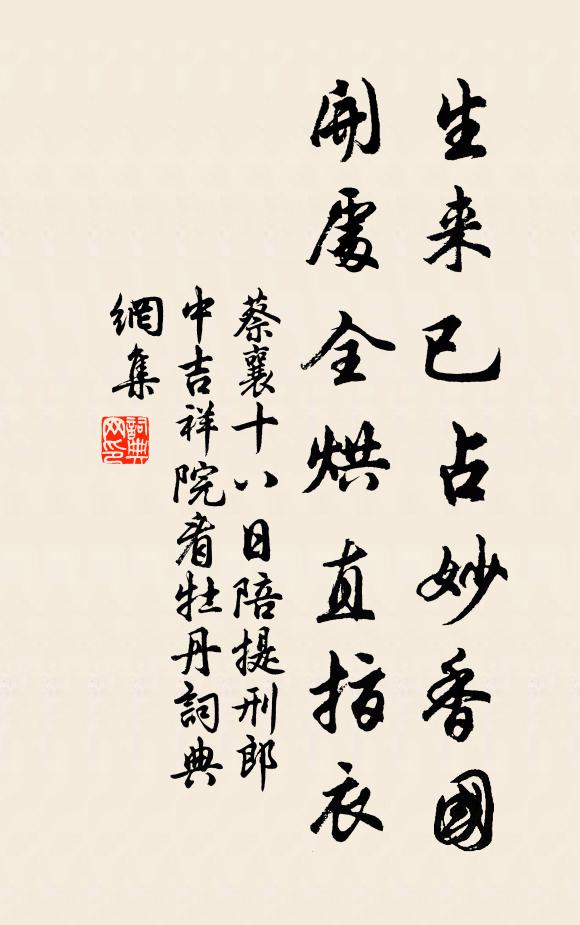 生来已占妙香國
開處全烘直指衣
蔡襄十八日陪提刑郎
中吉祥院看牡丹詞典
網集
詞典网印